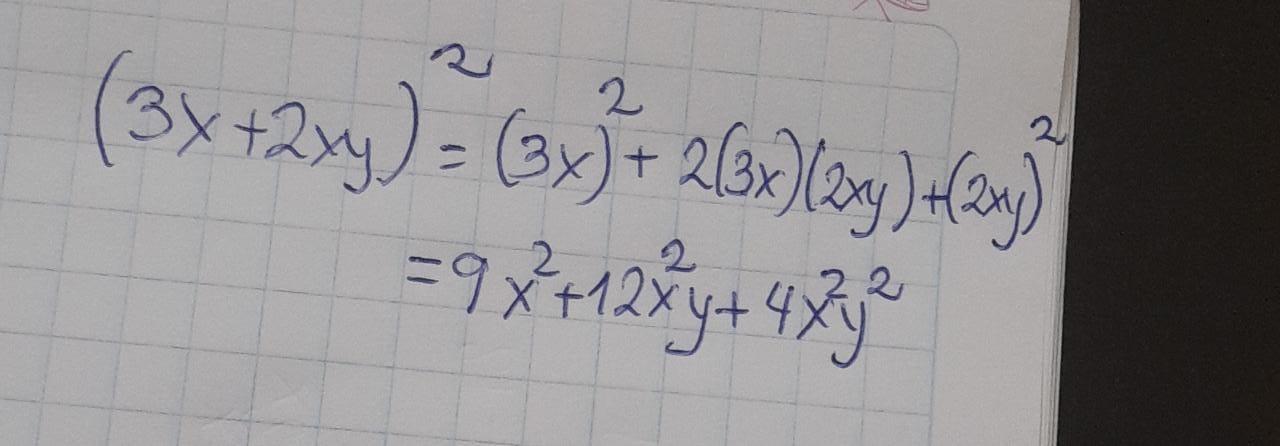 (3x+2xy)² = (3x)² + 2(3x)(2xy)+(2xy)²
=9x²+12x²y+4x²y²